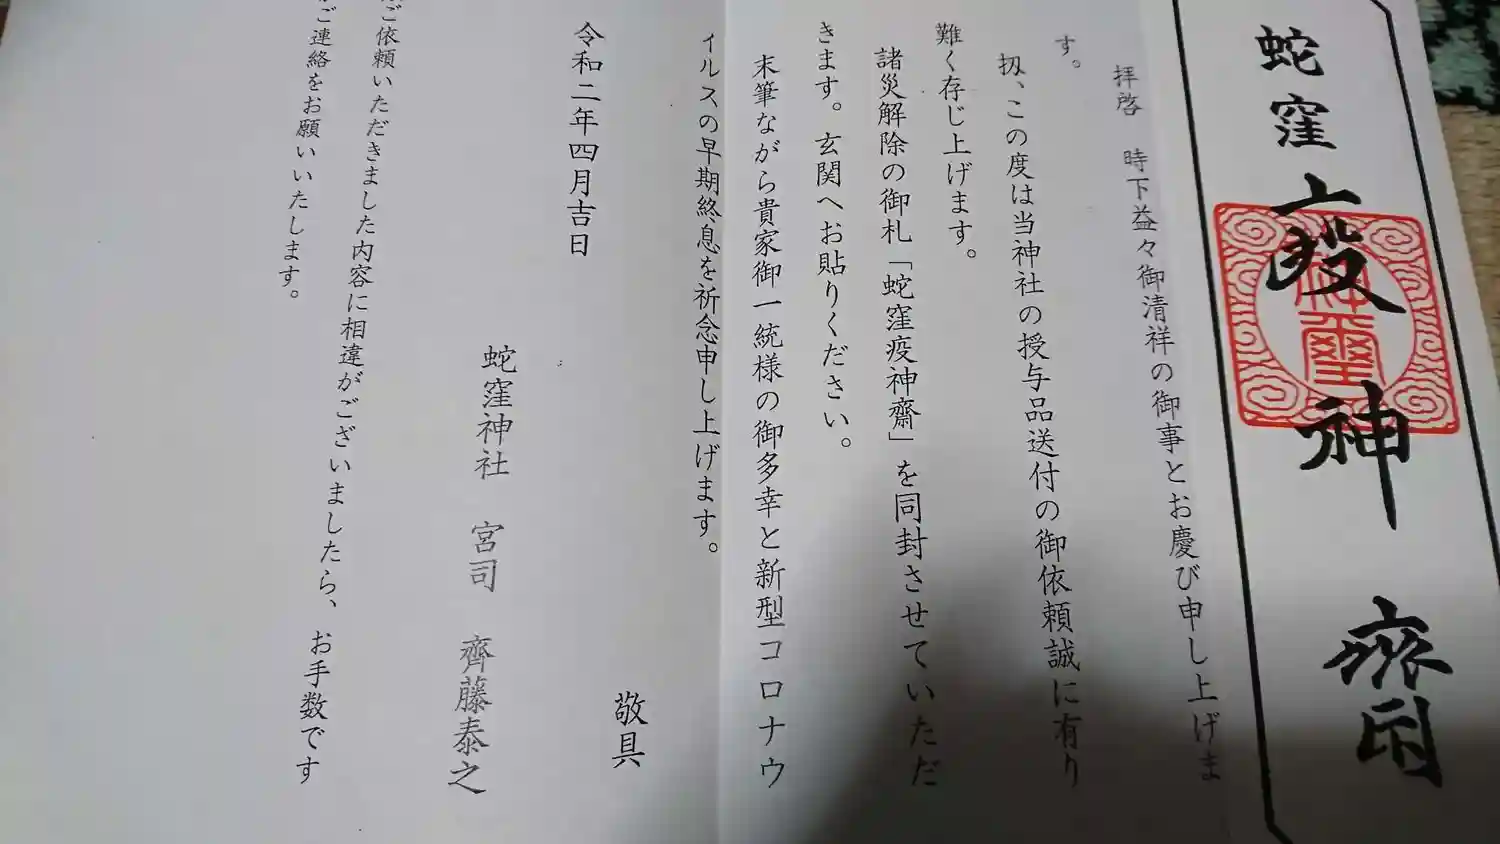 蛇窪疫神齋
神璽
拝啓 時下益々御清祥の御事とお慶び申し上げま
す。
扨、この度は当神社の授与品送付の御依頼誠に有り
難く存じ上げます。
諸災解除の御札「蛇窪疫神齋」を同封させていただ
きます。玄関へお貼りください。
末筆ながら貴家御一統様の御多幸と新型コロナウ
イルスの早期終息を祈念申し上げます。
敬具
令和二年四月吉日
蛇窪神社 宮司 齊藤泰之
ご依頼いただきました内容に相違がございましたら、お手数です
ご連絡をお願いいたします。